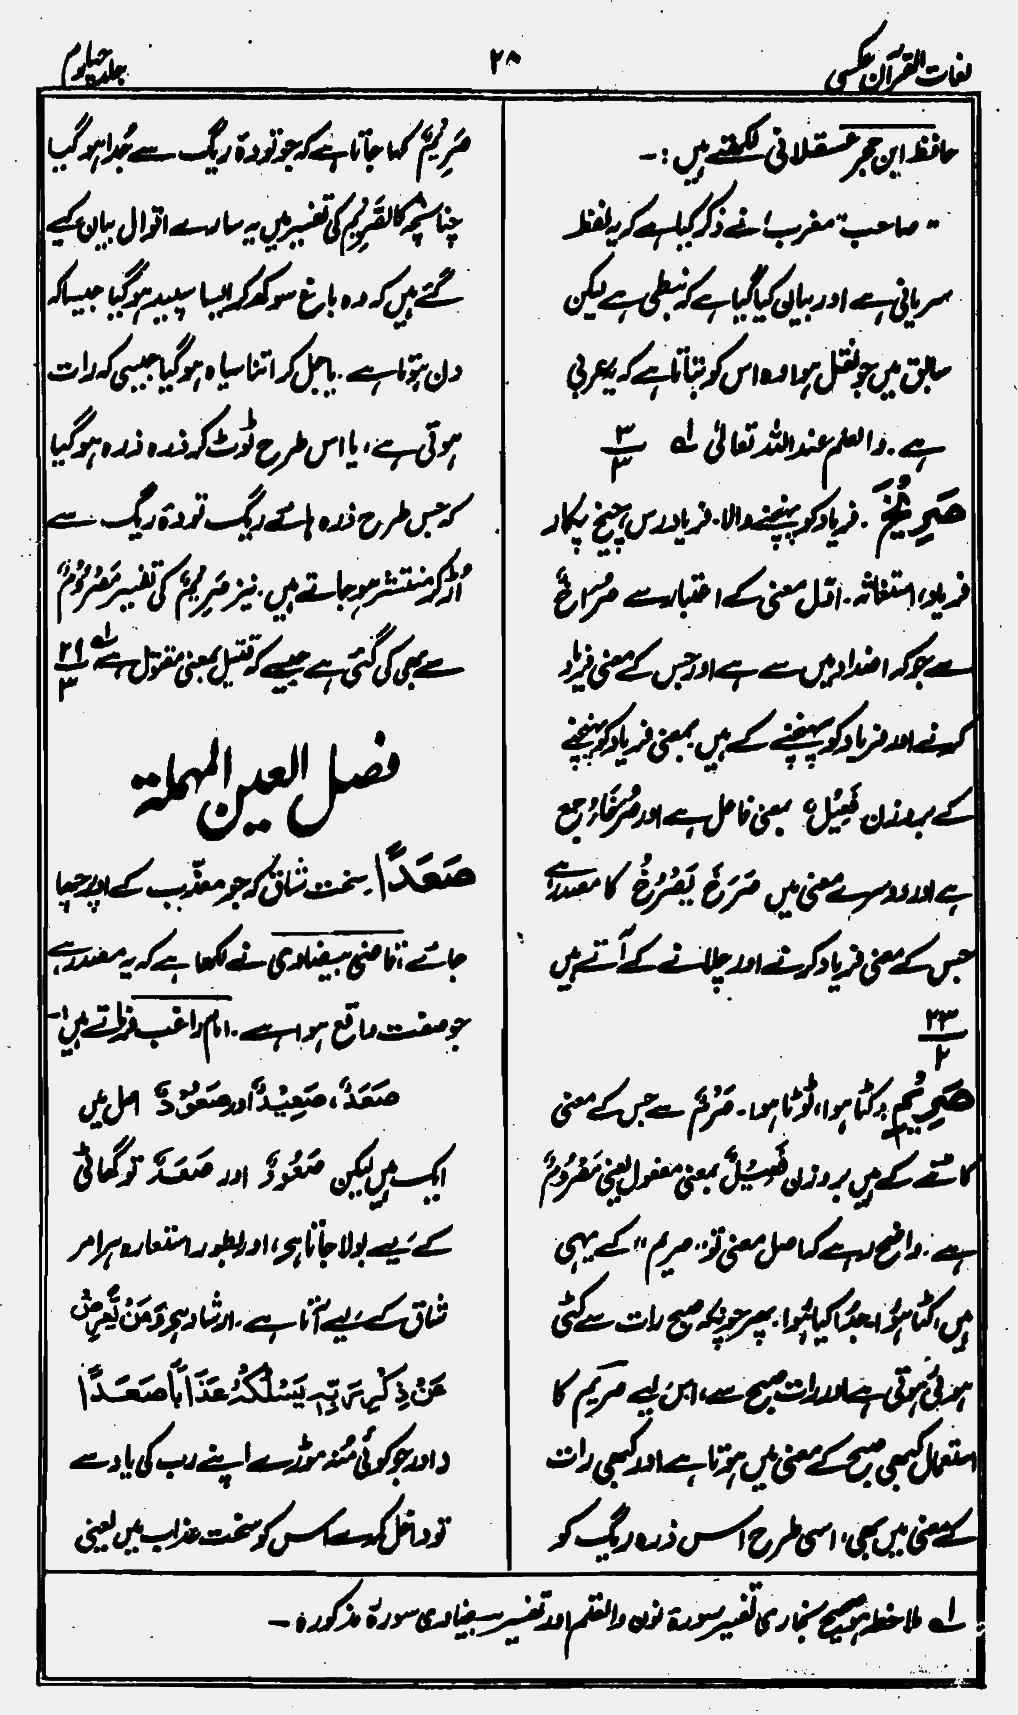 لغات القرآن عکسی
۲۸
جلد چہارم
حافظ ابن حجر عسقلانی لکھتے ہیں :-
" صاحب "مغرب" نے ذکر کیا ہے کہ یہ لفظ
سریانی ہے اور بیان کیا گیا ہے کہ نبطی ہے لیکن
سابق میں جو نقل ہوا وہ اس کو بتاتا ہے کہ یہ عربی
ہے . والعلم عند اللہ تعالیٰ لہ ۳/۳
صَرِیْخَ . فریاد کو پہنچنے والا . فریاد رس ، چیخ پکار
فریاد ، استغاثہ . اوّل معنی کے اعتبار سے صُرَاخٌ
سے جو کہ اضداد میں سے ہے اور جس کے معنی فریاد
کرنے اور فریاد کو پہنچنے کے ہیں بمعنی فریاد کو پہنچنے
کے بروزن فَعِیْلٌ بمعنی فاعل ہے اور صُرَخَاءُ جمع
ہے اور دوسرے معنی میں صَرَخَ یَصْرُخُ کا مصدر ہے
جس کے معنی فریاد کرنے اور چلانے کے آتے ہیں
۲۳/۲
صَرِیْمِ : کٹا ہوا ، ٹوٹا ہوا . صَرْمٌ سے جس کے معنی
کاٹنے کے ہیں بروزن فَعِیْلٌ بمعنی مفعول یعنی مَصْرُوْمٌ
ہے . واضح رہے کہ اصل معنی تو " صریم " کے یہی
ہیں ، کٹا ہؤا ، جدا کیا ہؤا . پھر چونکہ صبح رات سے کٹی
ہوئی ہوتی ہے اور رات صبح سے ، اس لیے صریم کا
استعمال کبھی صبح کے معنی میں ہوتا ہے اور کبھی رات
کے معنی میں بھی ، اسی طرح اس ذرہ ریگ کو
صَرِیْمٌ کہا جاتا ہے کہ جو تودۂ ریگ سے جُدا ہو گیا
چنانچہ کالصَّرِیْمِ کی تفسیر میں یہ سارے اقوال بیان کیے
گئے ہیں کہ وہ باغ سوکھ کر ایسا سپید ہو گیا جیسا کہ
دن ہوتا ہے . یا جل کر اتنا سیاہ ہو گیا جیسی کہ رات
ہوتی ہے ، یا اس طرح ٹوٹ کر ذرہ ذرہ ہو گیا
کہ جس طرح ذرہ ہائے ریگ تودۂ ریگ سے
اُڑ کر منتشر ہو جاتے ہیں . نیز صَرِیْمٌ کی تفسیر مَصْرُوْمٌ
سے بھی کی گئی ہے جیسے کہ قتیل بمعنی مقتول ہے لہ ۲۹/۳
فصل العین المہملۃ
صَعَدًا . سخت شاق کہ جو معذّب کے اوپر چھا
جائے ، قاضی بیضاوی نے لکھا ہے کہ یہ مصدر ہے
جو صفت واقع ہوا ہے . امام راغب فرماتے ہیں :-
صَعَدٌ ، صَعِیْدٌ اور صَعُوْدٌ اصل میں
ایک ہیں لیکن صَعُوْدٌ اور صَعَدٌ تو گھاٹی
کے لیے بولا جاتا ہے ، اور بطور استعارہ ہر امر
شاق کے لیے آتا ہے . ارشاد ہے وَمَنْ یُّعْرِضْ
عَنْ ذِکْرِ رَبِّہٖ یَسْلُکْہُ عَذَابًا صَعَدًا
( اور جو کوئی مُنہ موڑے اپنے رب کی یاد سے
تو داخل کرے اس کو سخت عذاب میں یعنی
لہ ملاحظہ ہو صحیح بخاری تفسیر سورۃ نون والقلم اور تفسیر بیضاوی سورۃ مذکورہ -